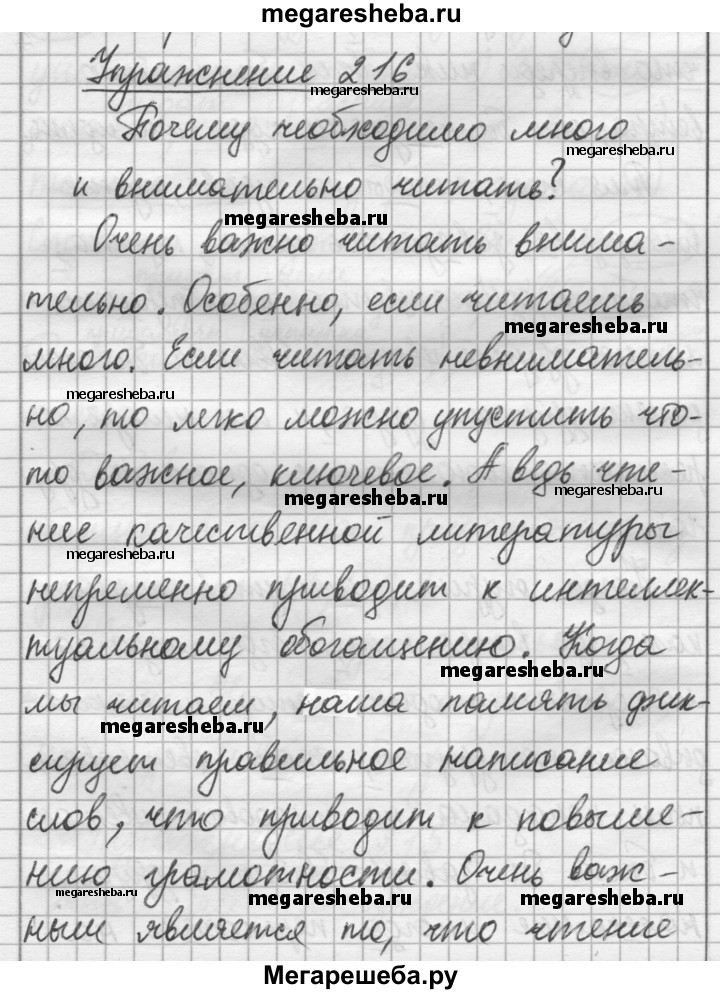 megaresheba.ru
Упражнение 216
megaresheba.ru
Почему необходимо много
megaresheba.ru
и внимательно читать?
megaresheba.ru
Очень важно читать внима-
тельно. Особенно, если читаешь
megaresheba.ru
много. Если читать невниматель-
megaresheba.ru
но, то легко можно упустить что-
то важное, ключевое. А ведь чте-
megaresheba.ru
megaresheba.ru
ние качественной литературы
megaresheba.ru
непременно приводит к интеллек-
туальному обогащению. Когда
megaresheba.ru
мы читаем, наша память фик-
megaresheba.ru
сирует правильное написание
слов, что приводит к повыше-
нию грамотности. Очень важ-
megaresheba.ru
megaresheba.ru
megaresheba.ru
ным является то, что чтение
Мегарешеба.ру